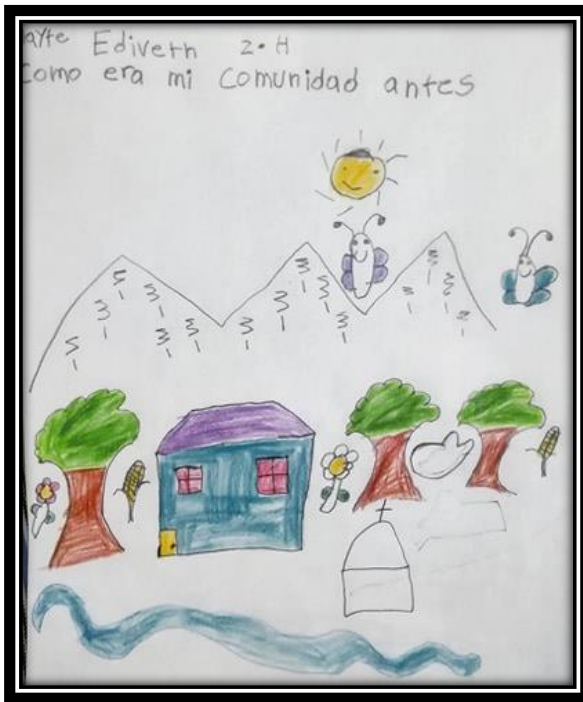 ayte Edivern 2·H
Como era mi comunidad antes